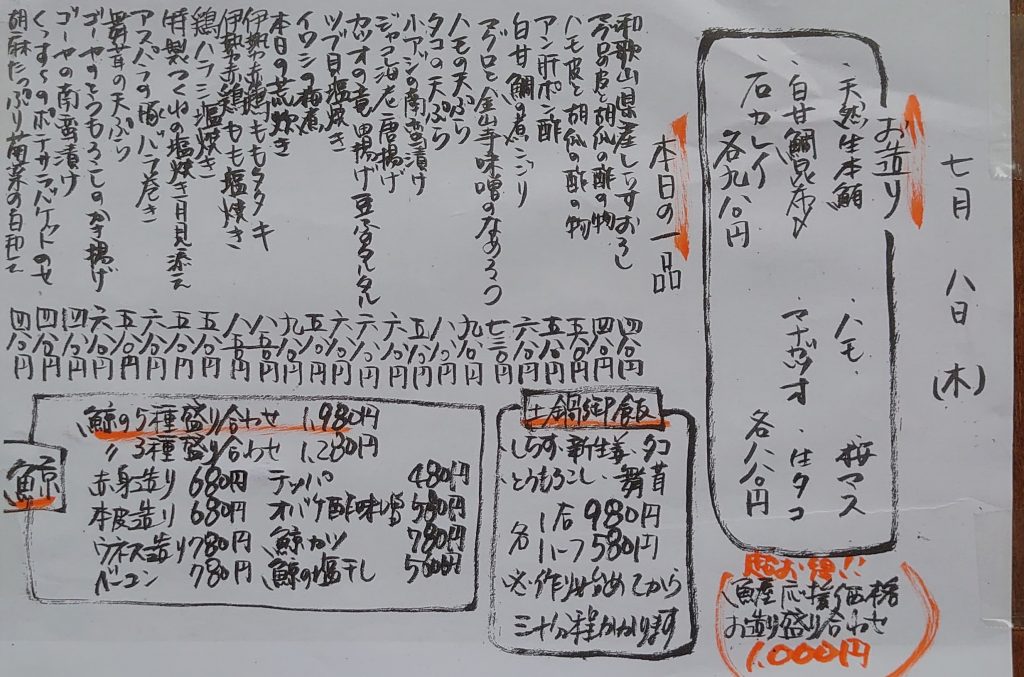 七月 八日 (木)
お造り
・天然生本鮪 ・ハモ ・桜マス
・白甘鯛昆布〆 ・マナガツオ ・生タコ
・石カレイ
各九八〇円 各八八〇円
本日の一品
和歌山県産しらすおろし 四八〇円
ハモ皮と胡瓜の酢の物 五八〇円
アン肝ポン酢 五八〇円
白甘鯛の煮こごり 六八〇円
マグロと金山寺味噌のなめろう 七三〇円
ハモの天ぷら 九八〇円
タコの天ぷら 八八〇円
小アジの南蛮漬け 五八〇円
ジャコ海老唐揚げ 六八〇円
カツオの竜田揚げ豆腐タルタル
ツブ貝塩焼き
イワシの梅煮
本日の荒炊き
伊勢赤鶏ももタタキ 八五〇円
伊勢赤鶏もも塩焼き 八五〇円
鶏ハラミ塩焼き 五八〇円
特製つくねの塩焼き月見添え 五八〇円
アスパラの豚バラ巻き 六八〇円
舞茸の天ぷら 五八〇円
ゴーヤのとうもろこしのかき揚げ 六八〇円
ゴーヤの南蛮漬け 四八〇円
くっすんのポテサラ、バケットのせ 四八〇円
胡麻たっぷり菊菜の白和え 四八〇円
土鍋御飯
・しらす・新生姜・タコ
・とうもろこし・舞茸
各 1合 980円
ハーフ 580円
※作り始めてから
三十分程かかります
鯨
鯨の5種盛り合わせ 1,980円
〃3種盛り合わせ 1,280円
赤身造り 680円 テッパ 480円
本皮造り 680円 オバケ酢味噌 580円
ウネス造り 780円 鯨カツ 780円
ベーコン 780円 鯨の塩干し 500円
魚産応援価格
お造り盛り合わせ
1,000円